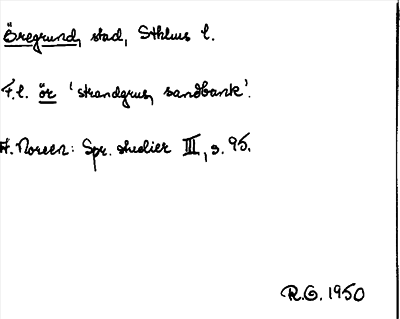 Öregrund, stad, Sthlms l.
F.l. ör 'strandgrus, sandbank'.
A. Noreen: Spr. studier III, s. 95.
R.G. 1950